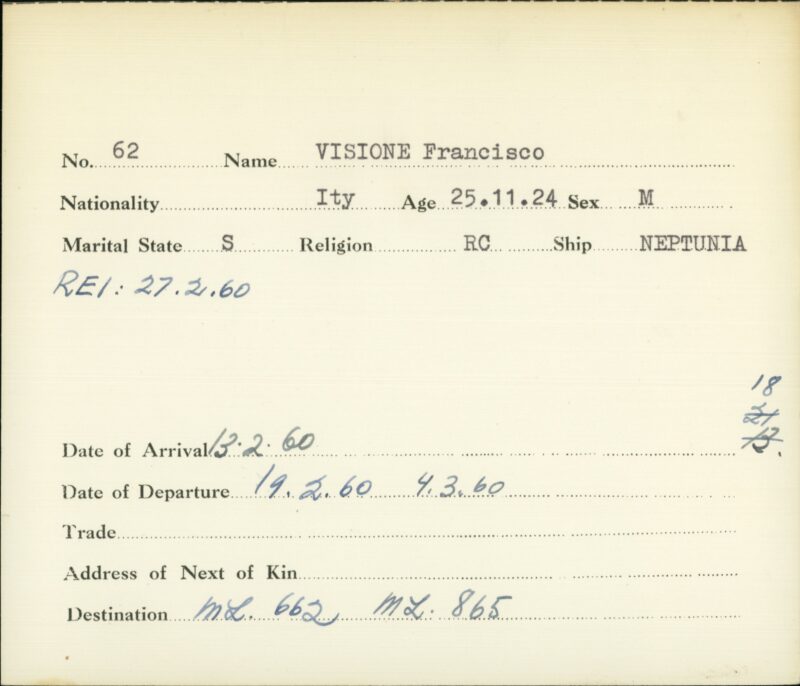 No. 62 Name VISIONE Francisco
Nationality Ity Age 25.11.24 Sex M
Marital State S Religion RC Ship NEPTUNIA
REI: 27.2.60
18
21
13.
Date of Arrival 13.2.60
Date of Departure 19.2.60 4.3.60
Trade
Address of Next of Kin
Destination ML. 662 ML. 865